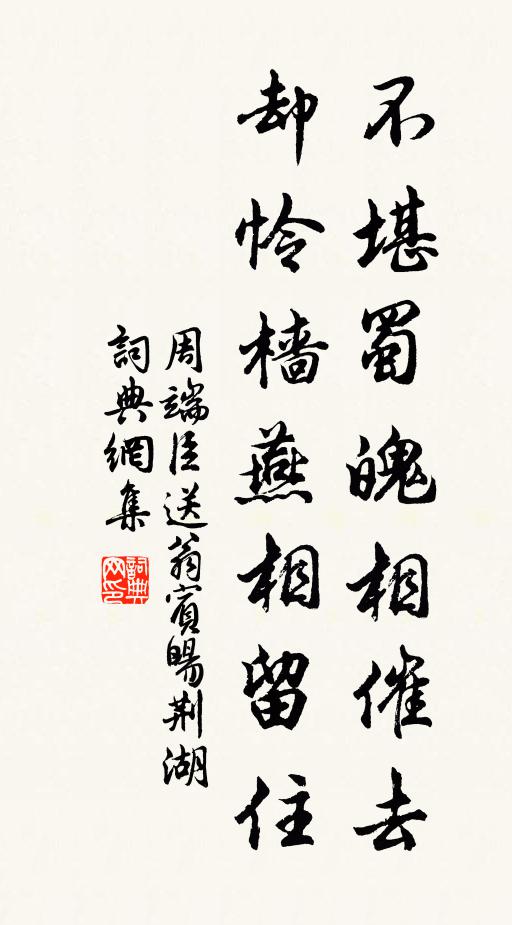 不堪蜀魄相催去
却怜樯燕相留住
周端臣送翁賓暘荆湖
詞典網集
詞典网印